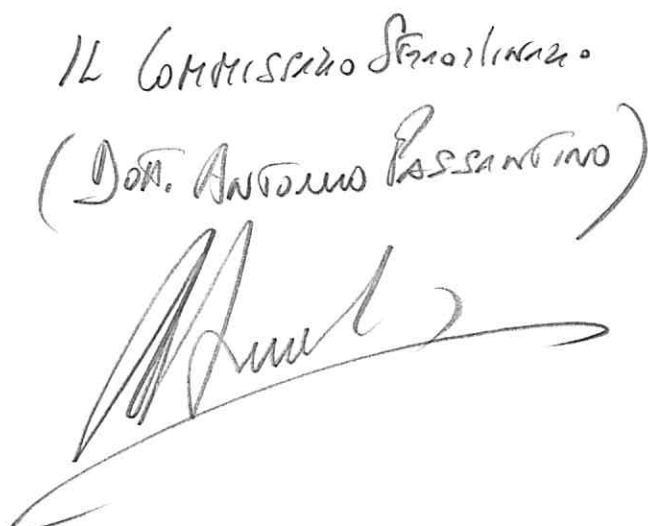 IL COMMISSARIO STRAORDINARIO
(DOTT. ANTONIO PASSANTINO)